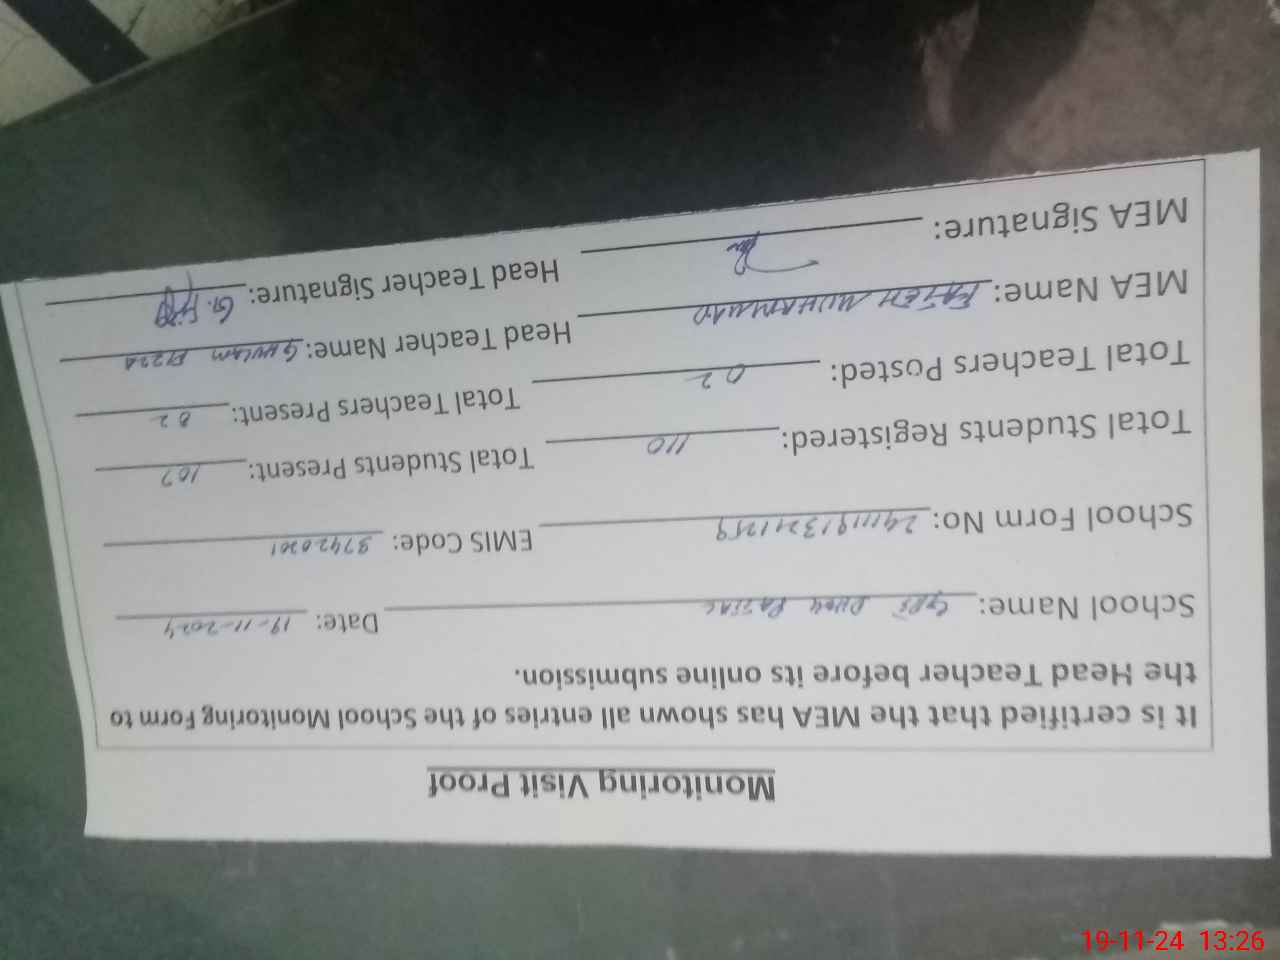 Monitoring Visit Proof
It is certified that the MEA has shown all entries of the School Monitoring Form to
the Head Teacher before its online submission.
School Name: GPS Date: 19-11-2024
School Form No: EMIS Code: 37420201
Total Students Registered: 110 Total Students Present: 107
Total Teachers Posted: 02 Total Teachers Present: 02
MEA Name: FATEH MUHAMMAD Head Teacher Name: GHULAM FIZZA
MEA Signature: Head Teacher Signature: G. Fizza
19-11-24 13:26